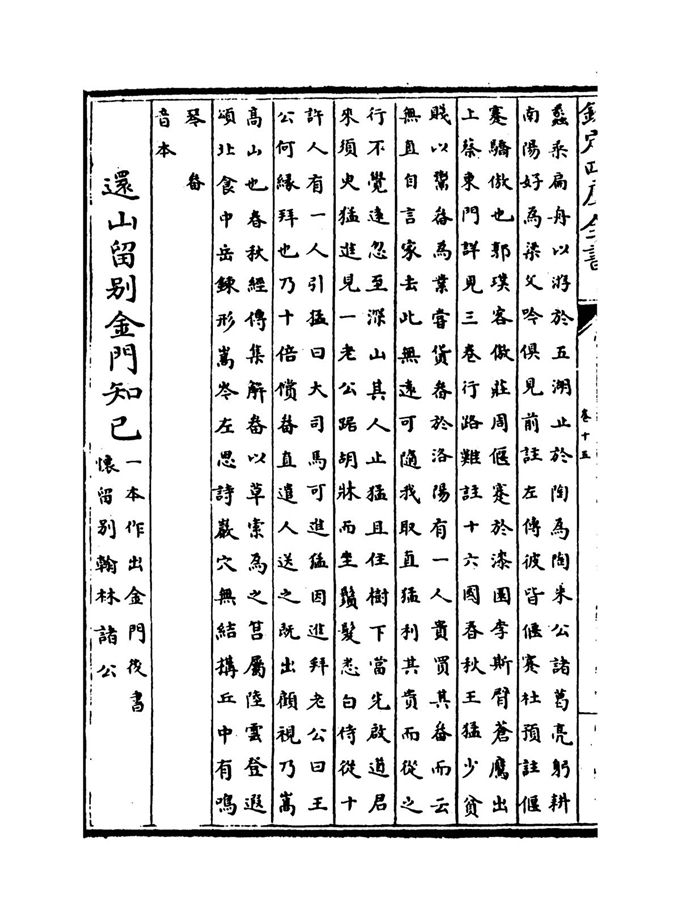 欽定四庫全書
卷十五
蠡乘扁舟以游於五湖止於陶為陶朱公諸葛亮躬耕
南陽好為梁父吟俱見前註左傳彼皆偃蹇杜預註偃
蹇驕傲也郭璞客傲莊周偃蹇於漆園李斯臂蒼鷹出
上蔡東門詳見三巻行路難註十六國春秋王猛少貧
賤以鬻畚為業嘗貨畚於洛陽有一人貴買其畚而云
無直自言家去此無逺可隨我取直猛利其貴而從之
行不覺逺忽至深山其人止猛且住樹下當先啟道君
來須臾猛進見一老公踞胡牀而坐鬚髮悉白侍從十
許人有一人引猛曰大司馬可進猛因進拜老公曰王
公何縁拜也乃十倍償畚直遣人送之既出顧視乃嵩
高山也春秋經傳集解畚以草索為之筥屬陸雲登遐
頌北食中岳鍊形嵩岑左思詩巖穴無結搆丘中有鳴
琴 畚
音本
還山留别金門知已
一本作出金門後書
懐留别翰林諸公